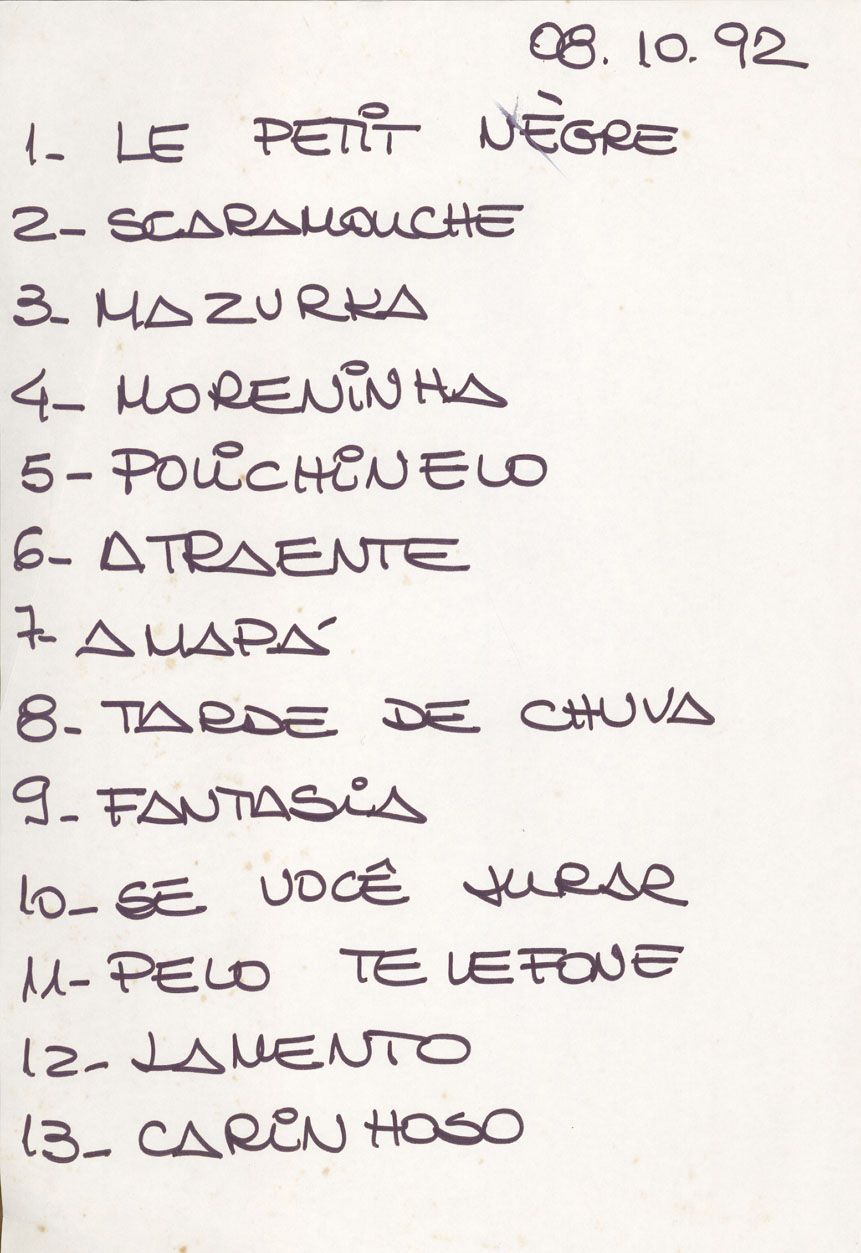 08.10.92
1- LE PETIT NÈGRE
2- SCARAMOUCHE
3- MAZURKA
4- MORENINHA
5- POLICHINELO
6- ATRAENTE
7- AMAPÁ
8- TARDE DE CHUVA
9- FANTASIA
10- SE VOCÊ JURAR
11- PELO TELEFONE
12- LAMENTO
13- CARINHOSO